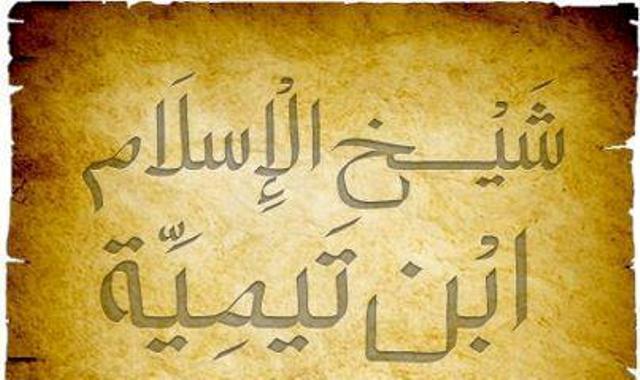 شَيْـــخ الْإِسلَام
ابْن تَيمِيَّة